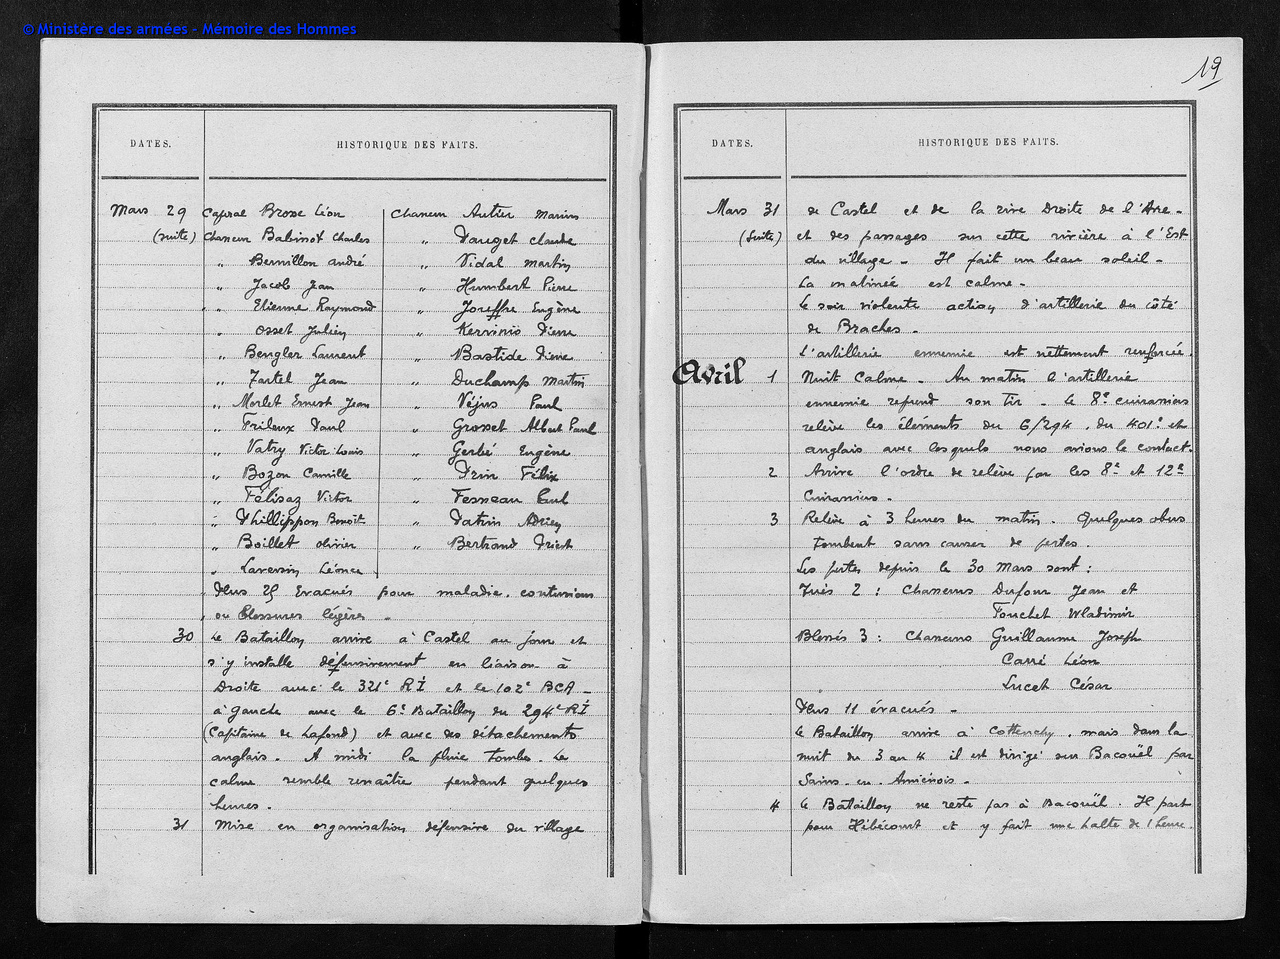 © Ministère des armées - Mémoire des Hommes
DATES. HISTORIQUE DES FAITS.
Mars 29 Caporal Brosse Léon Chasseur Autier Marius
(suite) Chasseur Babinot Charles " Dauget Claude
" Bernillon André " Vidal Martin
" Jacob Jean " Humbert Pierre
" Etienne Raymond " Jouffre Eugène
" Osset Julien " Kervinio Pierre
" Bengler Laurent " Bastide Pierre
" Jartel Jean " Duchamp Martin
" Morlet Ernest Jean " Véjus Paul
" Frileux Paul " Grosset Albert Paul
" Vatry Victor Louis " Gerbé Eugène
" Bozon Camille " Prin Félix
" Félisaz Victor " Fesneau Paul
" Phillippon Benoît " Patrin Adrien
" Boillet Olivier " Bertrand Priest
" Laversin Léonce
Plus 25 évacués pour maladie, contusions
ou blessures légères.
30 Le Bataillon arrive à Castel au jour et
s'y installe défensivement en liaison à
Droite avec le 321e RI et le 102e BCA -
à gauche avec le 6e Bataillon du 294e RI
(Capitaine de Lafond) et avec des détachements
anglais. A midi la pluie tombe. Le
calme semble renaître pendant quelques
heures.
31 Mise en organisation défensive du village
19
DATES. HISTORIQUE DES FAITS.
Mars 31 de Castel et de la rive Droite de l'Avre -
(Suite) et des passages sur cette rivière à l'Est
du village - Il fait un beau soleil -
La matinée est calme -
Le soir violente action d'artillerie du côté
de Braches -
L'artillerie ennemie est nettement renforcée.
Avril 1 Nuit Calme - Au matin l'artillerie
ennemie reprend son tir - Le 8e cuirassiers
relève les éléments du 6/294, du 401e et
anglais avec lesquels nous avions le contact.
2 Arrive l'ordre de relève par les 8e et 12e
Cuirassiers -
3 Relève à 3 heures du matin. Quelques obus
tombent sans causer de pertes.
Les pertes depuis le 30 Mars sont :
Tués 2 : Chasseurs Dufour Jean et
Fouchet Wladimir
Blessés 3 : Chasseurs Guillaume Joseph
Carré Léon
Lucet César
Plus 11 évacués -
Le Bataillon arrive à Cottenchy, mais dans la
nuit du 3 au 4 il est dirigé sur Bacouël par
Sains-en-Amiénois -
4 Le Bataillon ne reste pas à Bacouël. Il part
pour Hébécourt et y fait une halte de 1 heure.